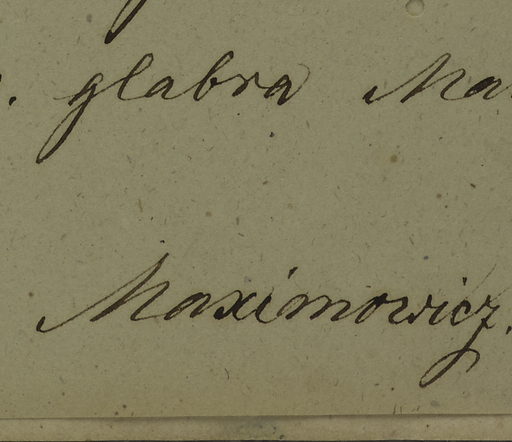 . glabra Ma
Maximowicz.